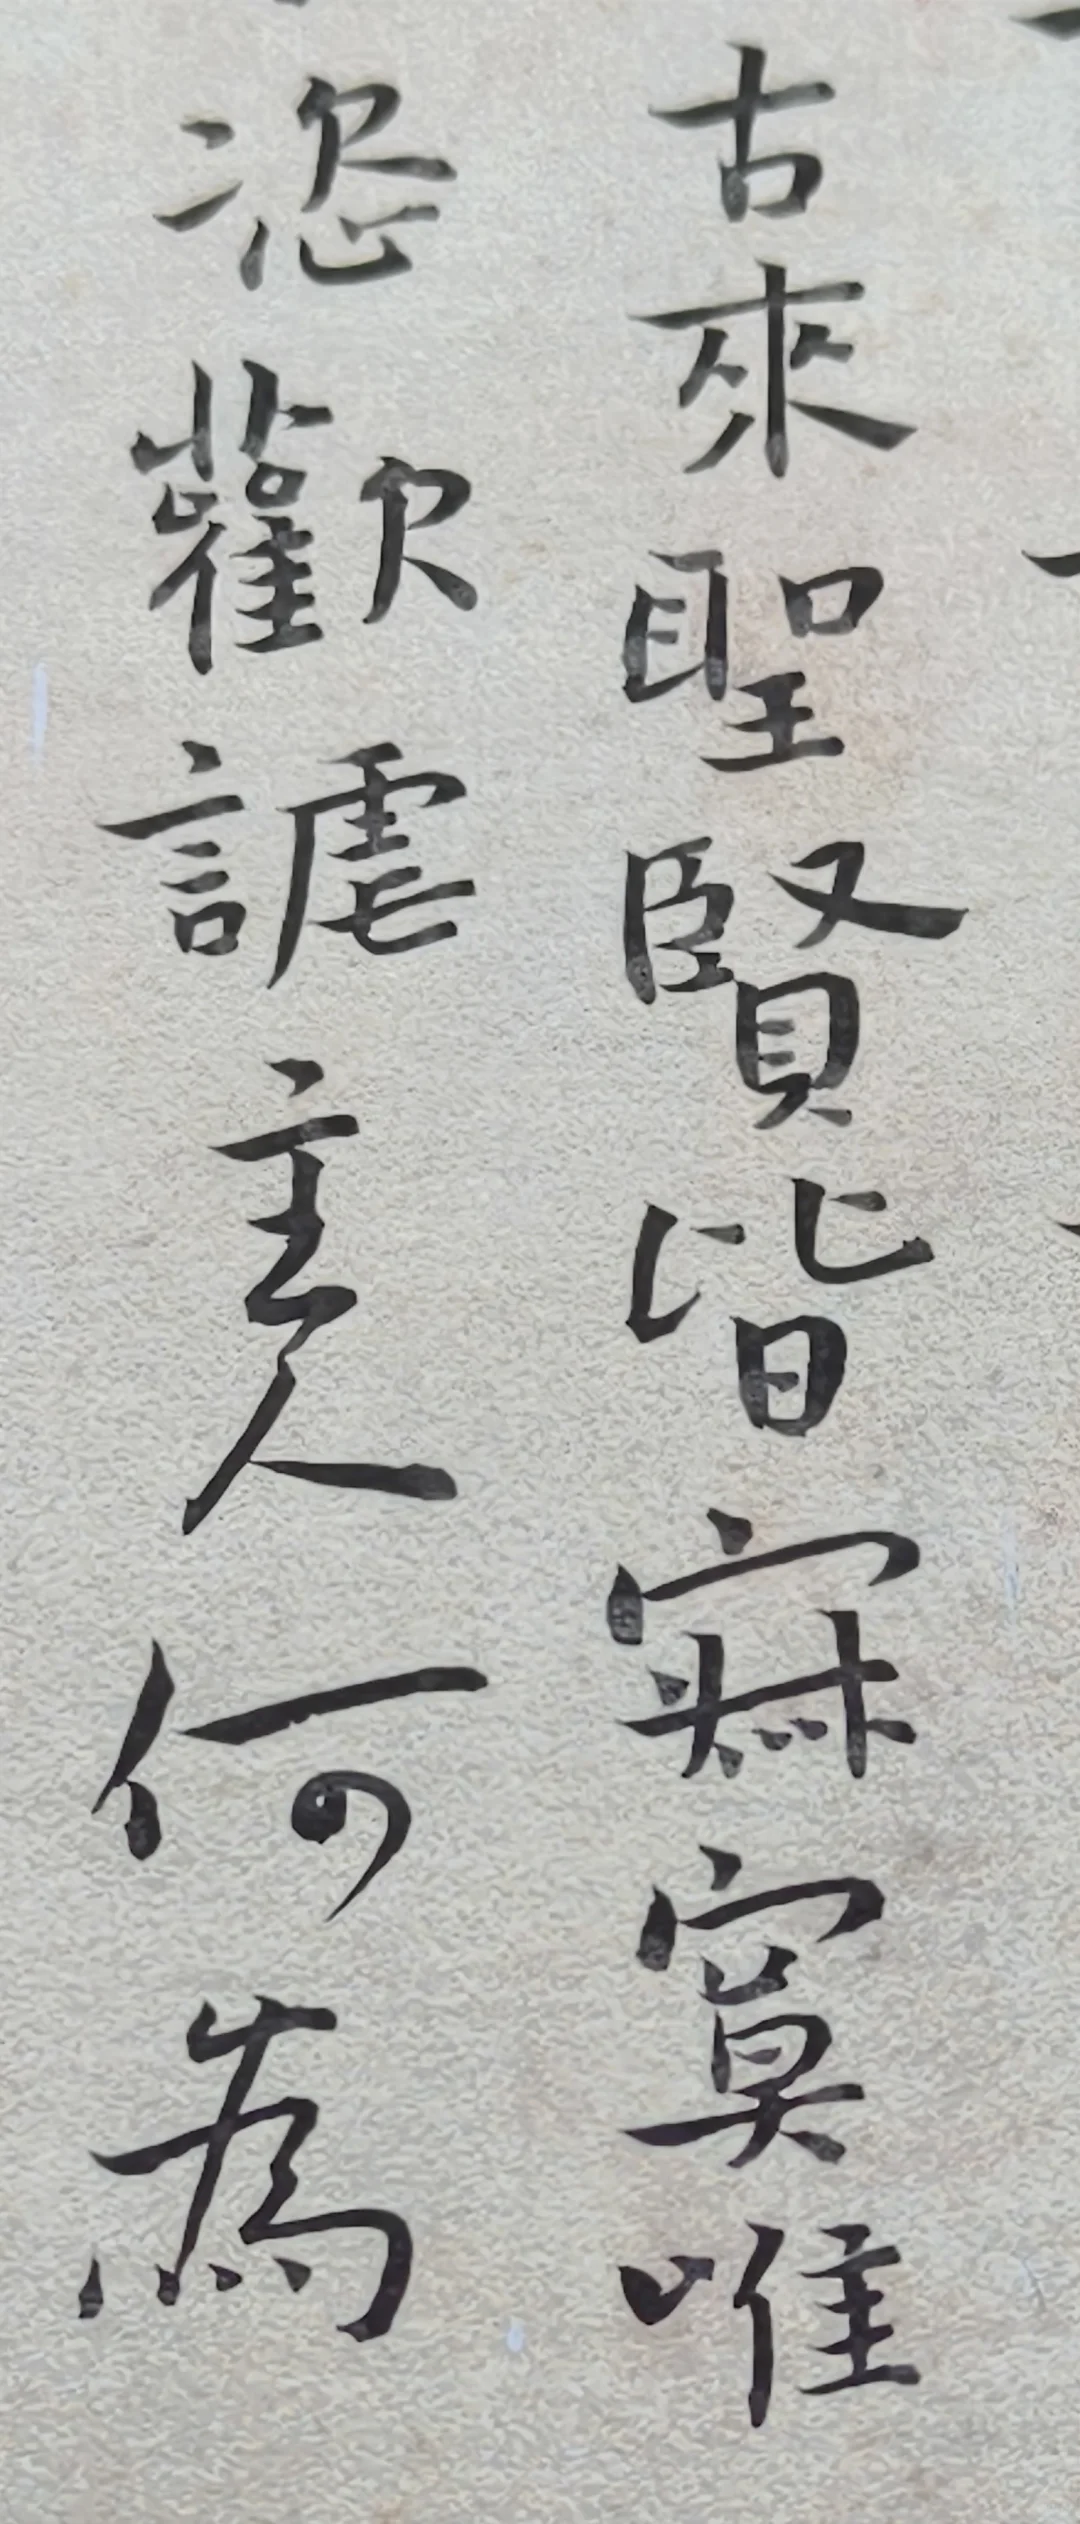 古來聖賢皆寂寞唯
恣歡謔主人何為